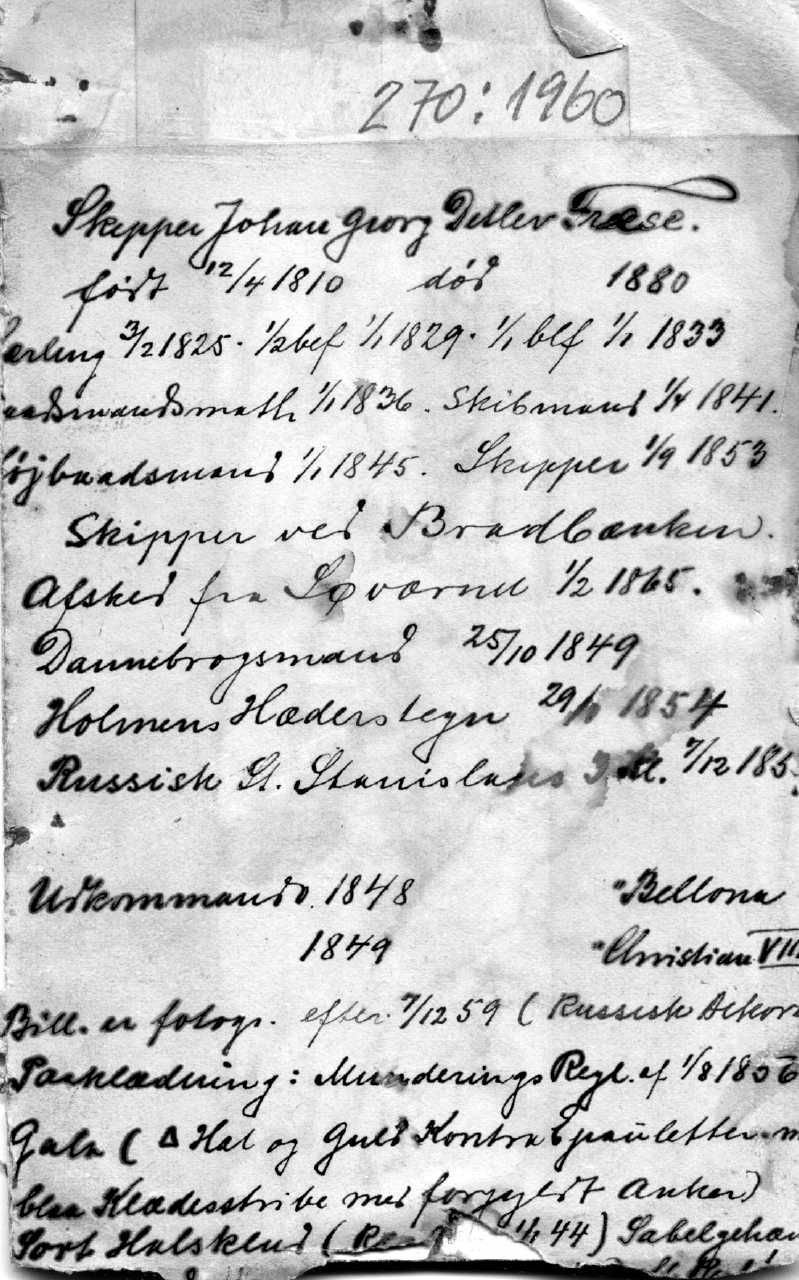 270:1960
Skipper Johan Georg Detlev Freese.
født 12/4 1810 død 1880
ærling 3/2 1825. 1/2 bef 1/1 1829. 1/1 blf 1/1 1833
aadsmandsmath 1/1 1836. Skibmand 1/4 1841.
øjbaadsmand 1/1 1845. Skipper 1/9 1853
Skipper ved Bradbænken.
Afsked fra Søværnet 1/2 1865.
Dannebrogsmand 25/10 1849
Holmens Hæderstegn 29/1 1854
Russisk St. Stanislaus 3 Kl. 7/12 185
Udkommando. 1848 "Bellona
1849 "Christian VIII
Bill. er fotogr. efter 7/12 59 ( Russisk Dekora
Paaklædning: Munderings Regl. af 1/8 1856
Gala ( Δ Hat og Guld Kontra Epauletter m
blaa Klædesstribe med forgyldt Anker)
Sort Halsklud ( 1/1 44) Sabelgehæn